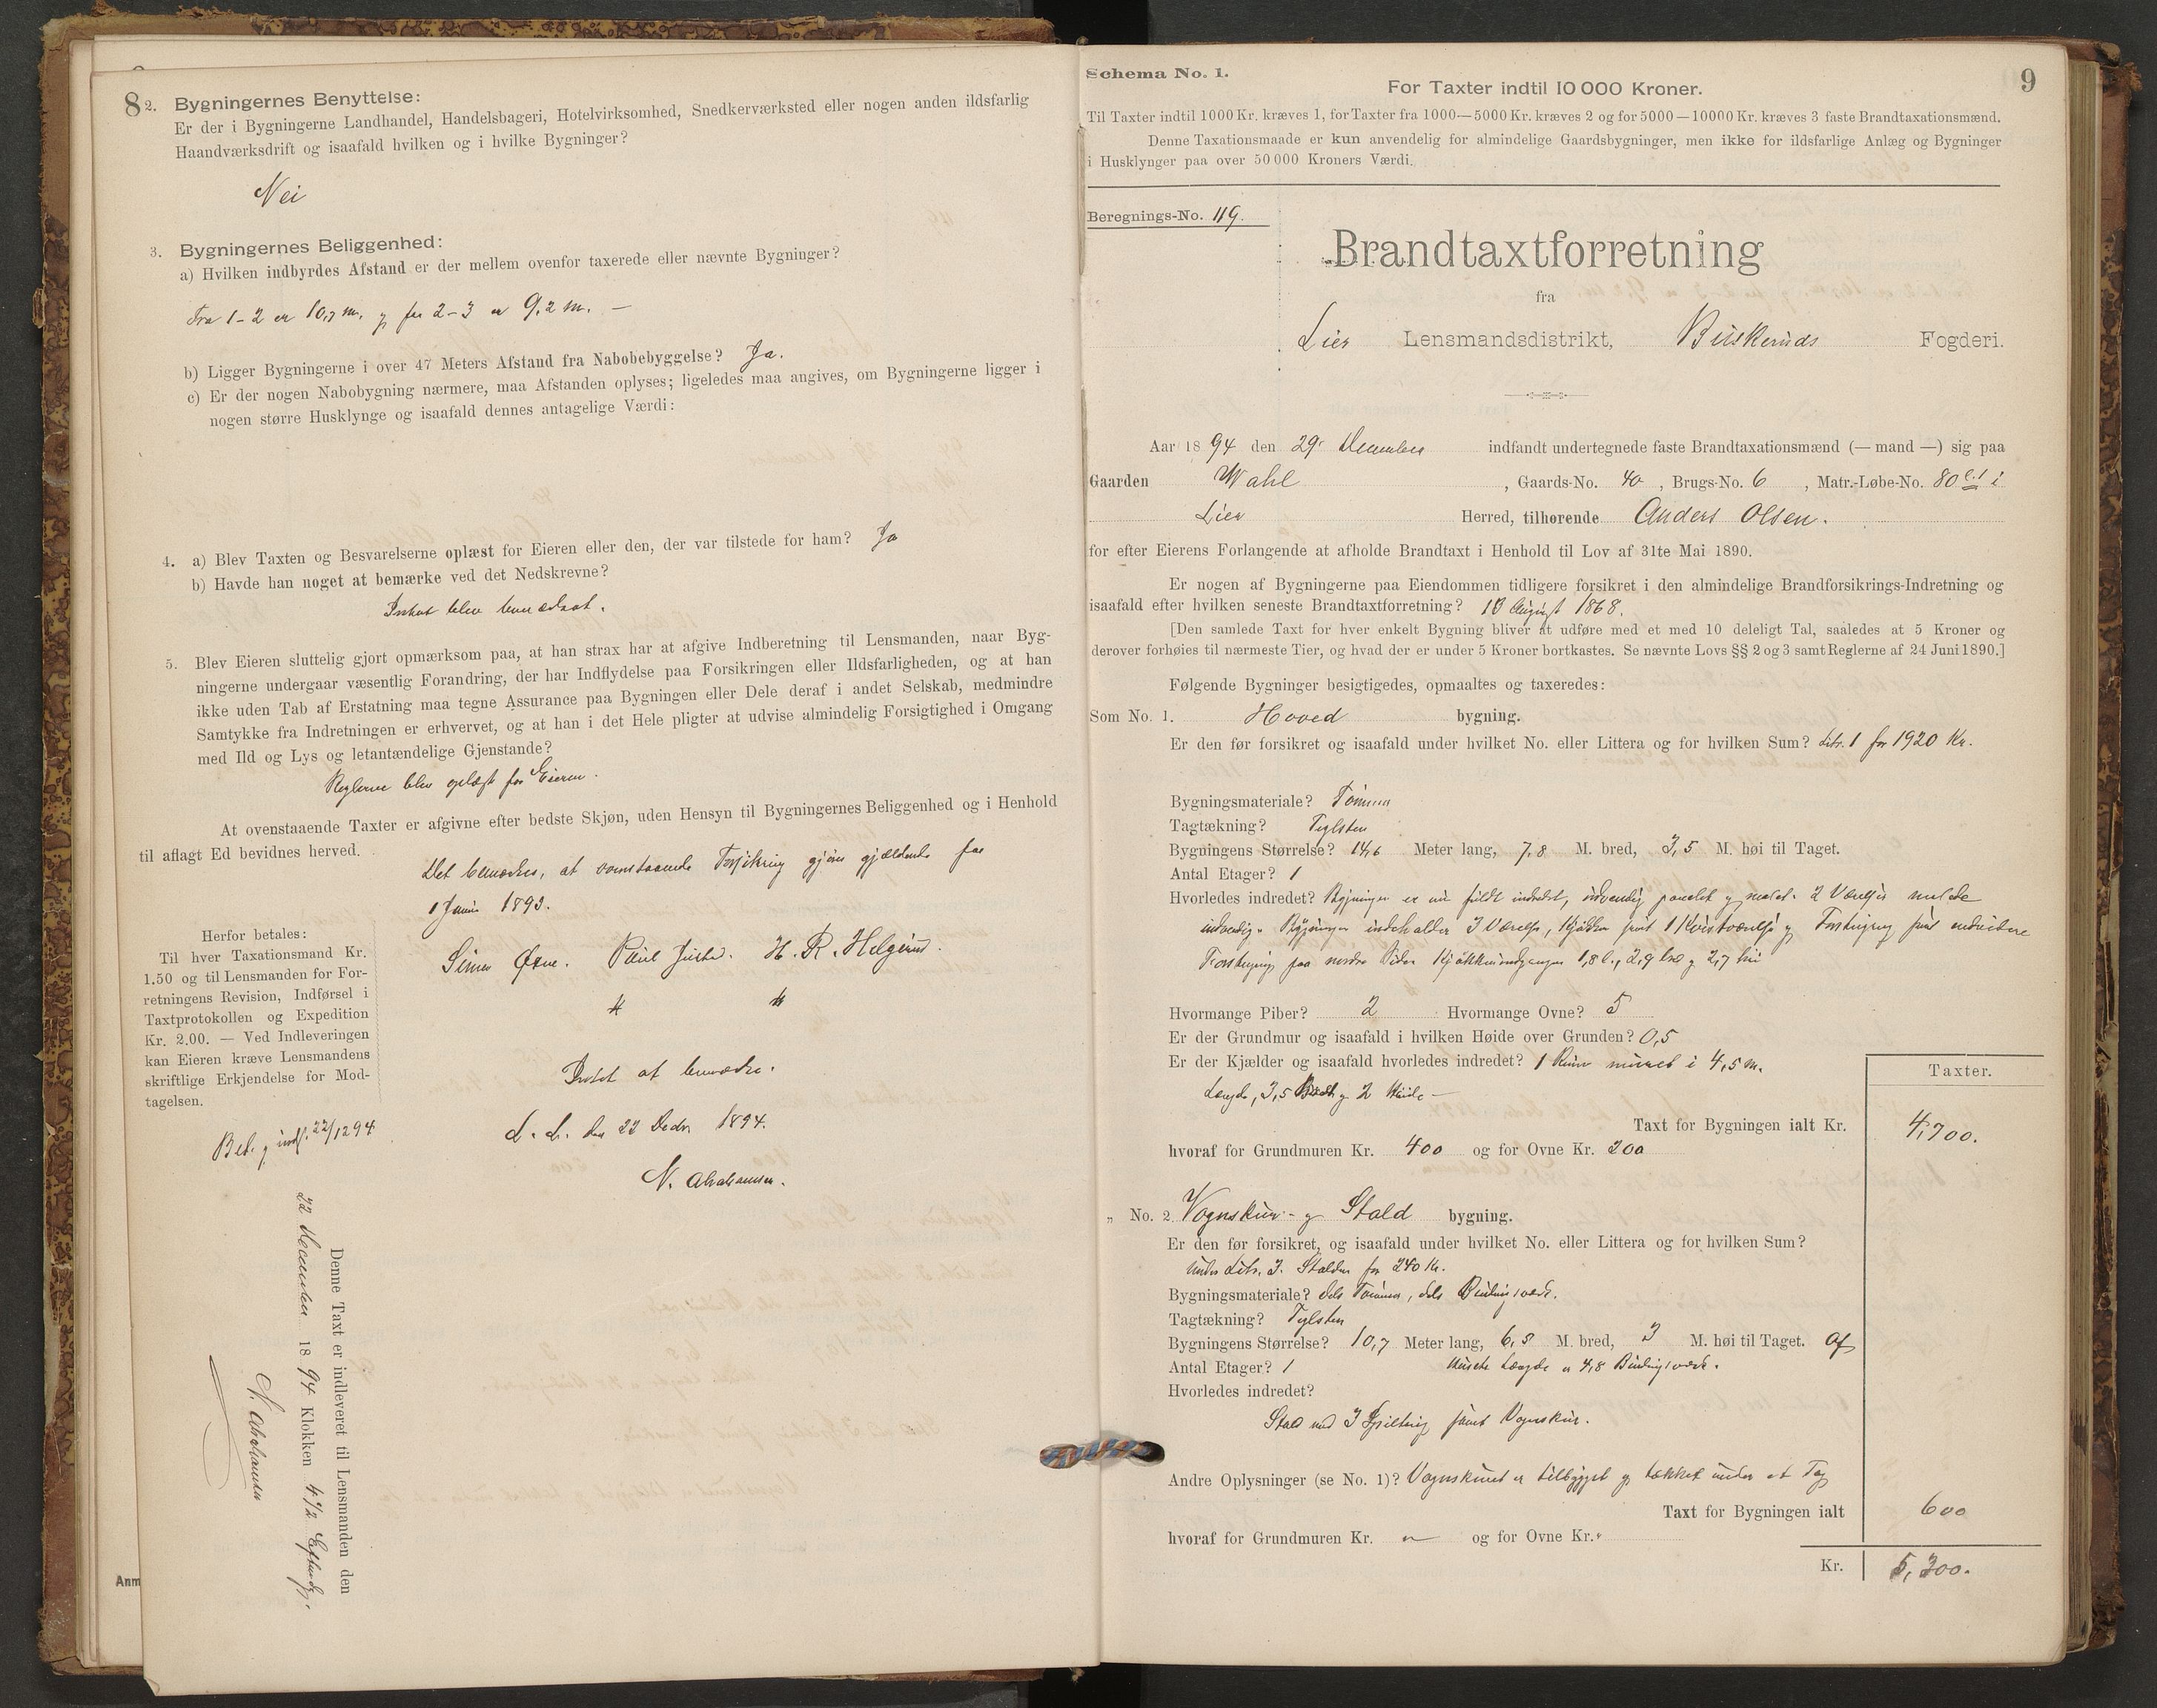 8
2. Bygningernes Benyttelse:
Er der i Bygningerne Landhandel, Handelsbageri, Hotelvirksomhed, Snedkerværksted eller nogen anden ildsfarlig
Haandværksdrift og isaafald hvilken og i hvilke Bygninger?
Nei
3. Bygningernes Beliggenhed:
a) Hvilken indbyrdes Afstand er der mellem ovenfor taxerede eller nævnte Bygninger?
Fra 1-2 er 10,7 m. og fra 2-3 er 9,2 m. —
b) Ligger Bygningerne i over 47 Meters Afstand fra Nabobebyggelse? Ja.
c) Er der nogen Nabobygning nærmere, maa Afstanden oplyses; ligeledes maa angives, om Bygningerne ligger i
nogen større Husklynge og isaafald dennes antagelige Værdi:
4. a) Blev Taxten og Besvarelserne oplæst for Eieren eller den, der var tilstede for ham? Ja
b) Havde han noget at bemærke ved det Nedskrevne?
Intet blev bemærket.
5. Blev Eieren sluttelig gjort opmærksom paa, at han strax har at afgive Indberetning til Lensmanden, naar Byg-
ningerne undergaar væsentlig Forandring, der har Indflydelse paa Forsikringen eller Ildsfarligheden, og at han
ikke uden Tab af Erstatning maa tegne Assurance paa Bygningen eller Dele deraf i andet Selskab, medmindre
Samtykke fra Indretningen er erhvervet, og at han i det Hele pligter at udvise almindelig Forsigtighed i Omgang
med Ild og Lys og letantændelige Gjenstande?
Reglerne blev oplæst for Eieren.
At ovenstaaende Taxter er afgivne efter bedste Skjøn, uden Hensyn til Bygningernes Beliggenhed og i Henhold
til aflagt Ed bevidnes herved.
Det bemærkes, at ovenstaaende Forsikring gjøres gjældende fra
1 Januar 1893.
H. R. Helgerud.
Herfor betales:
Til hver Taxationsmand Kr.
1.50 og til Lensmanden for For-
retningens Revision, Indførsel i
Taxtprotokollen og Expedition
Kr. 2.00. — Ved Indleveringen
kan Eieren kræve Lensmandens
skriftlige Erkjendelse for Mod-
tagelsen.
Bet. og indf. 22/12 94
Intet at bemærke.
L. L. den 22 Decbr. 1894.
N. Abrahamsen.
Denne Taxt er indleveret til Lensmanden den
22 December 1894 Klokken 4 1/2 Efterm.
N. Abrahamsen
Anm
9
Schema No. 1.
For Taxter indtil 10000 Kroner.
Til Taxter indtil 1000 Kr. kræves 1, for Taxter fra 1000—5000 Kr. kræves 2 og for 5000—10000 Kr. kræves 3 faste Brandtaxationsmænd.
Denne Taxationsmaade er kun anvendelig for almindelige Gaardsbygninger, men ikke for ildsfarlige Anlæg og Bygninger
i Husklynger paa over 50000 Kroners Værdi.
Beregnings-No. 119.
Brandtaxtforretning
fra
Lier Lensmandsdistrikt, Buskeruds Fogderi.
Aar 1894 den 29 December indfandt undertegnede faste Brandtaxationsmænd (— mand —) sig paa
Gaarden Wahl, Gaards-No. 40, Brugs-No. 6, Matr.-Løbe-No. 80 l.1 i
Lier Herred, tilhørende Anders Olsen.
for efter Eierens Forlangende at afholde Brandtaxt i Henhold til Lov af 31te Mai 1890.
Er nogen af Bygningerne paa Eiendommen tidligere forsikret i den almindelige Brandforsikrings-Indretning og
isaafald efter hvilken seneste Brandtaxtforretning? August 1868.
[Den samlede Taxt for hver enkelt Bygning bliver at udføre med et med 10 deleligt Tal, saaledes at 5 Kroner og
derover forhøies til nærmeste Tier, og hvad der er under 5 Kroner bortkastes. Se nævnte Lovs §§ 2 og 3 samt Reglerne af 24 Juni 1890.]
Følgende Bygninger besigtigedes, opmaaltes og taxeredes:
Som No. 1. Hoved bygning.
Er den før forsikret og isaafald under hvilket No. eller Littera og for hvilken Sum? Litr. 1 for 1920 Kr.
Bygningsmateriale? Tømmer
Tagtækning? Teglsten
Bygningens Størrelse? 14,6 Meter lang, 7,8 M. bred, 3,5 M. høi til Taget.
Antal Etager? 1
Hvorledes indredet? Bygningen er nu fuldt indredet, indvendig panelet og malet. 2 Værelser malede
indvendig. Bygningen indeholder 3 Værelser, Kjøkken samt 1 Kvistværelse og
paa nordre Side Kjøkkenindgangen 1,8 l., 2,9 br. og 2,7 høi
Hvormange Piber? 2 Hvormange Ovne? 5
Er der Grundmur og isaafald i hvilken Høide over Grunden? 0,5
Er der Kjælder og isaafald hvorledes indredet? 1 Rum muret i 4,5 m.
Længde, 3,5 Bredde og 2 Høide —
Taxter.
Taxt for Bygningen ialt Kr. 4,700.
hvoraf for Grundmuren Kr. 400 og for Ovne Kr. 200
„ No. 2. Vognskur- og Stald bygning.
Er den før forsikret, og isaafald under hvilket No. eller Littera og for hvilken Sum?
Under Litr. 3. Stalden for 240 Kr.
Bygningsmateriale? dels Tømmer, dels Bindingsværk.
Tagtækning? Teglsten
Bygningens Størrelse? 10,7 Meter lang, 6,5 M. bred, 3 M. høi til Taget. Af
Antal Etager? 1 Længde er 4,8 Bindingsværk.
Hvorledes indredet?
Stald med 3 Spiltoug samt Vognskur.
Andre Oplysninger (se No. 1)? Vognskuret er tilbygget og tækket under et Tag
Taxt for Bygningen ialt 600
hvoraf for Grundmuren Kr. og for Ovne Kr.
Kr. 5,300.